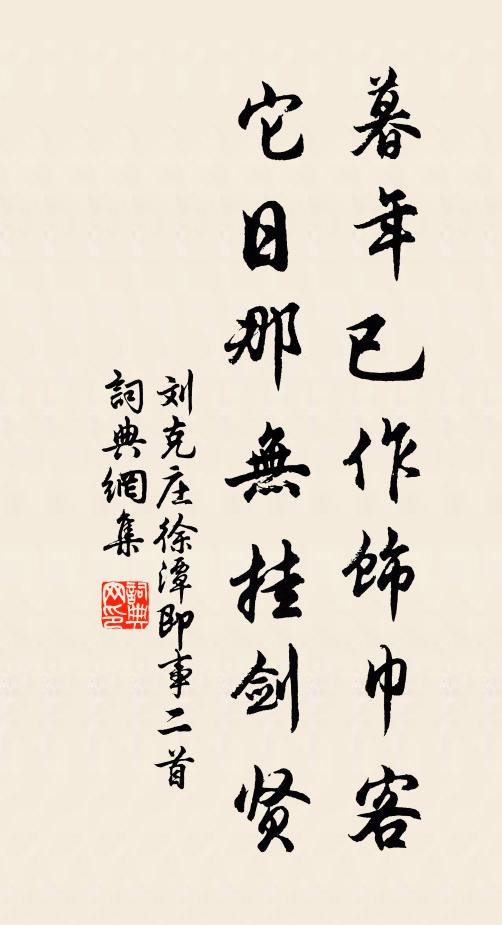 暮年已作飾巾客
它日那無挂剑贤
刘克庄徐潭即事二首
詞典網集
詞典网印